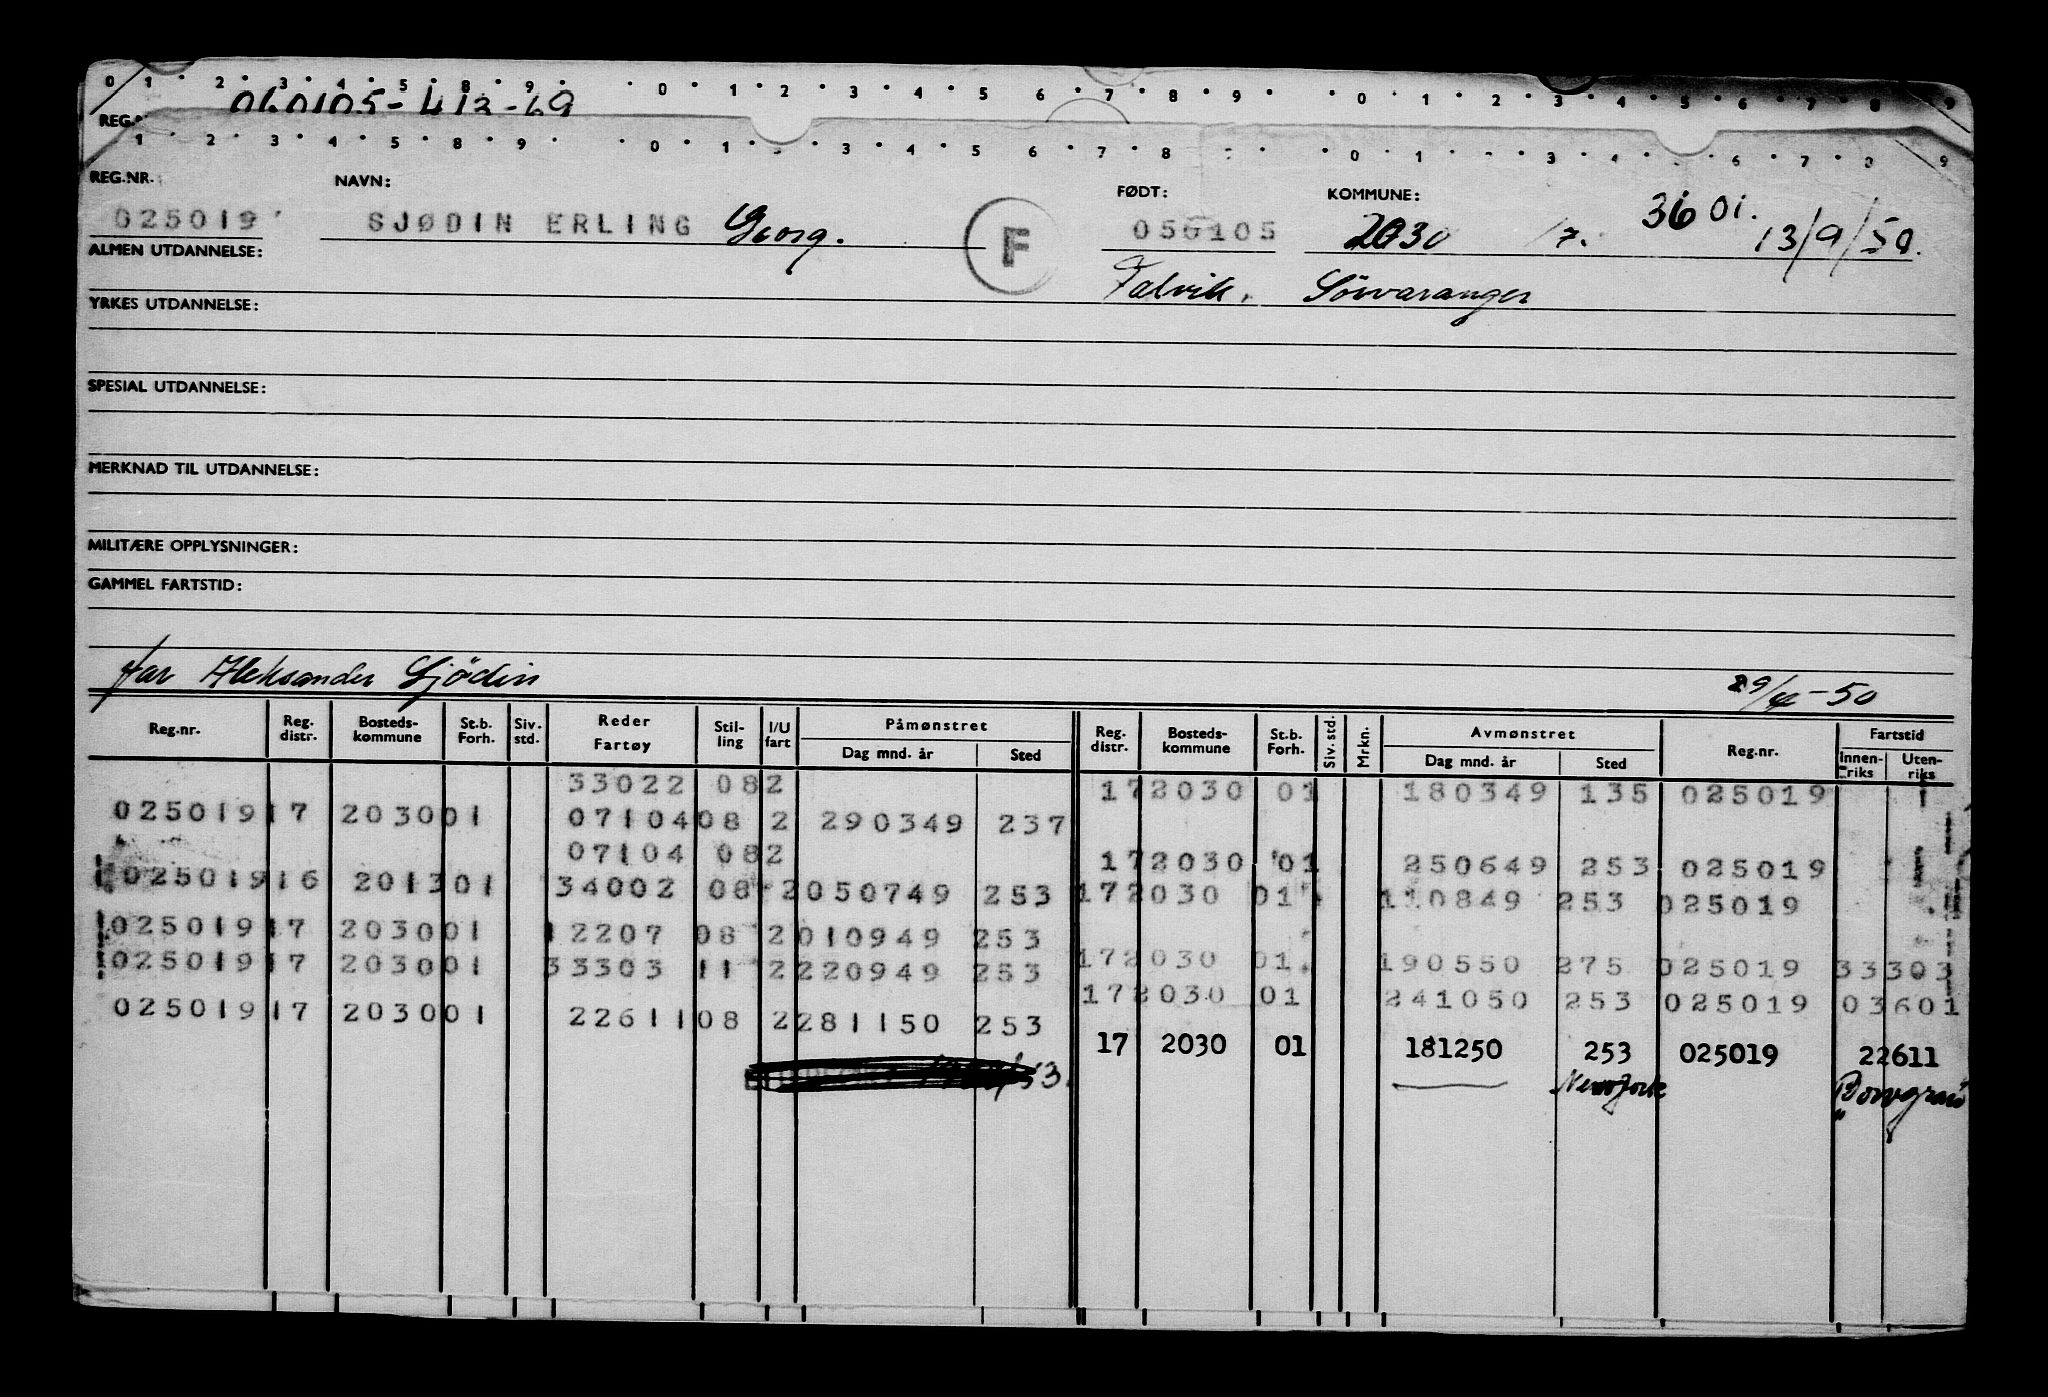 0 1 2 3 4 5 8 9 0 1 2 3 4 5 6 7 8 9 0 1 2 3 4 5 6 7 8 9
REG. 060105-413-69
1 2 3 4 5 8 9 0 1 3 4 5 6 7 8 0 1 3 4 6 7 8 9
REG.NR. NAVN: FØDT: KOMMUNE:
025019 SJØDIN ERLING Georg. F 050105 2030 7. 3601. 13/9/50.
ALMEN UTDANNELSE: Talvik. Sörvaranger
YRKES UTDANNELSE:
SPESIAL UTDANNELSE:
MERKNAD TIL UTDANNELSE:
MILITÆRE OPPLYSNINGER:
GAMMEL FARTSTID:
far Aleksander Sjödin 29/4-50
Reg.nr. Reg. distr. Bosteds-kommune St.b. Forh. Siv. std. Reder Fartøy Stil-ling I/U fart Påmønstret Dag mnd. år Sted Reg. distr. Bosteds-kommune St.b. Forh. Siv. std. Mrkn. Avmønstret Dag mnd. år Sted Reg.nr. Fartstid Innen-riks Uten-riks
33022 082 172030 01 180349 135 025019
025019 17 203001 07104 08 2 290349 237
07104 082 172030 01 250649 253 025019
025019 16 201301 34002 08 2 050749 253 172030 01 110849 253 025019
025019 17 203001 12207 08 2 010949 253
025019 17 203001 33303 11 2 220949 253 172030 01. 190550 275 025019 33303
172030 01 241050 253 025019 03601
025019 17 203001 22611 08 2 281150 253
17 2030 01 181250 253 025019 22611
3. New York